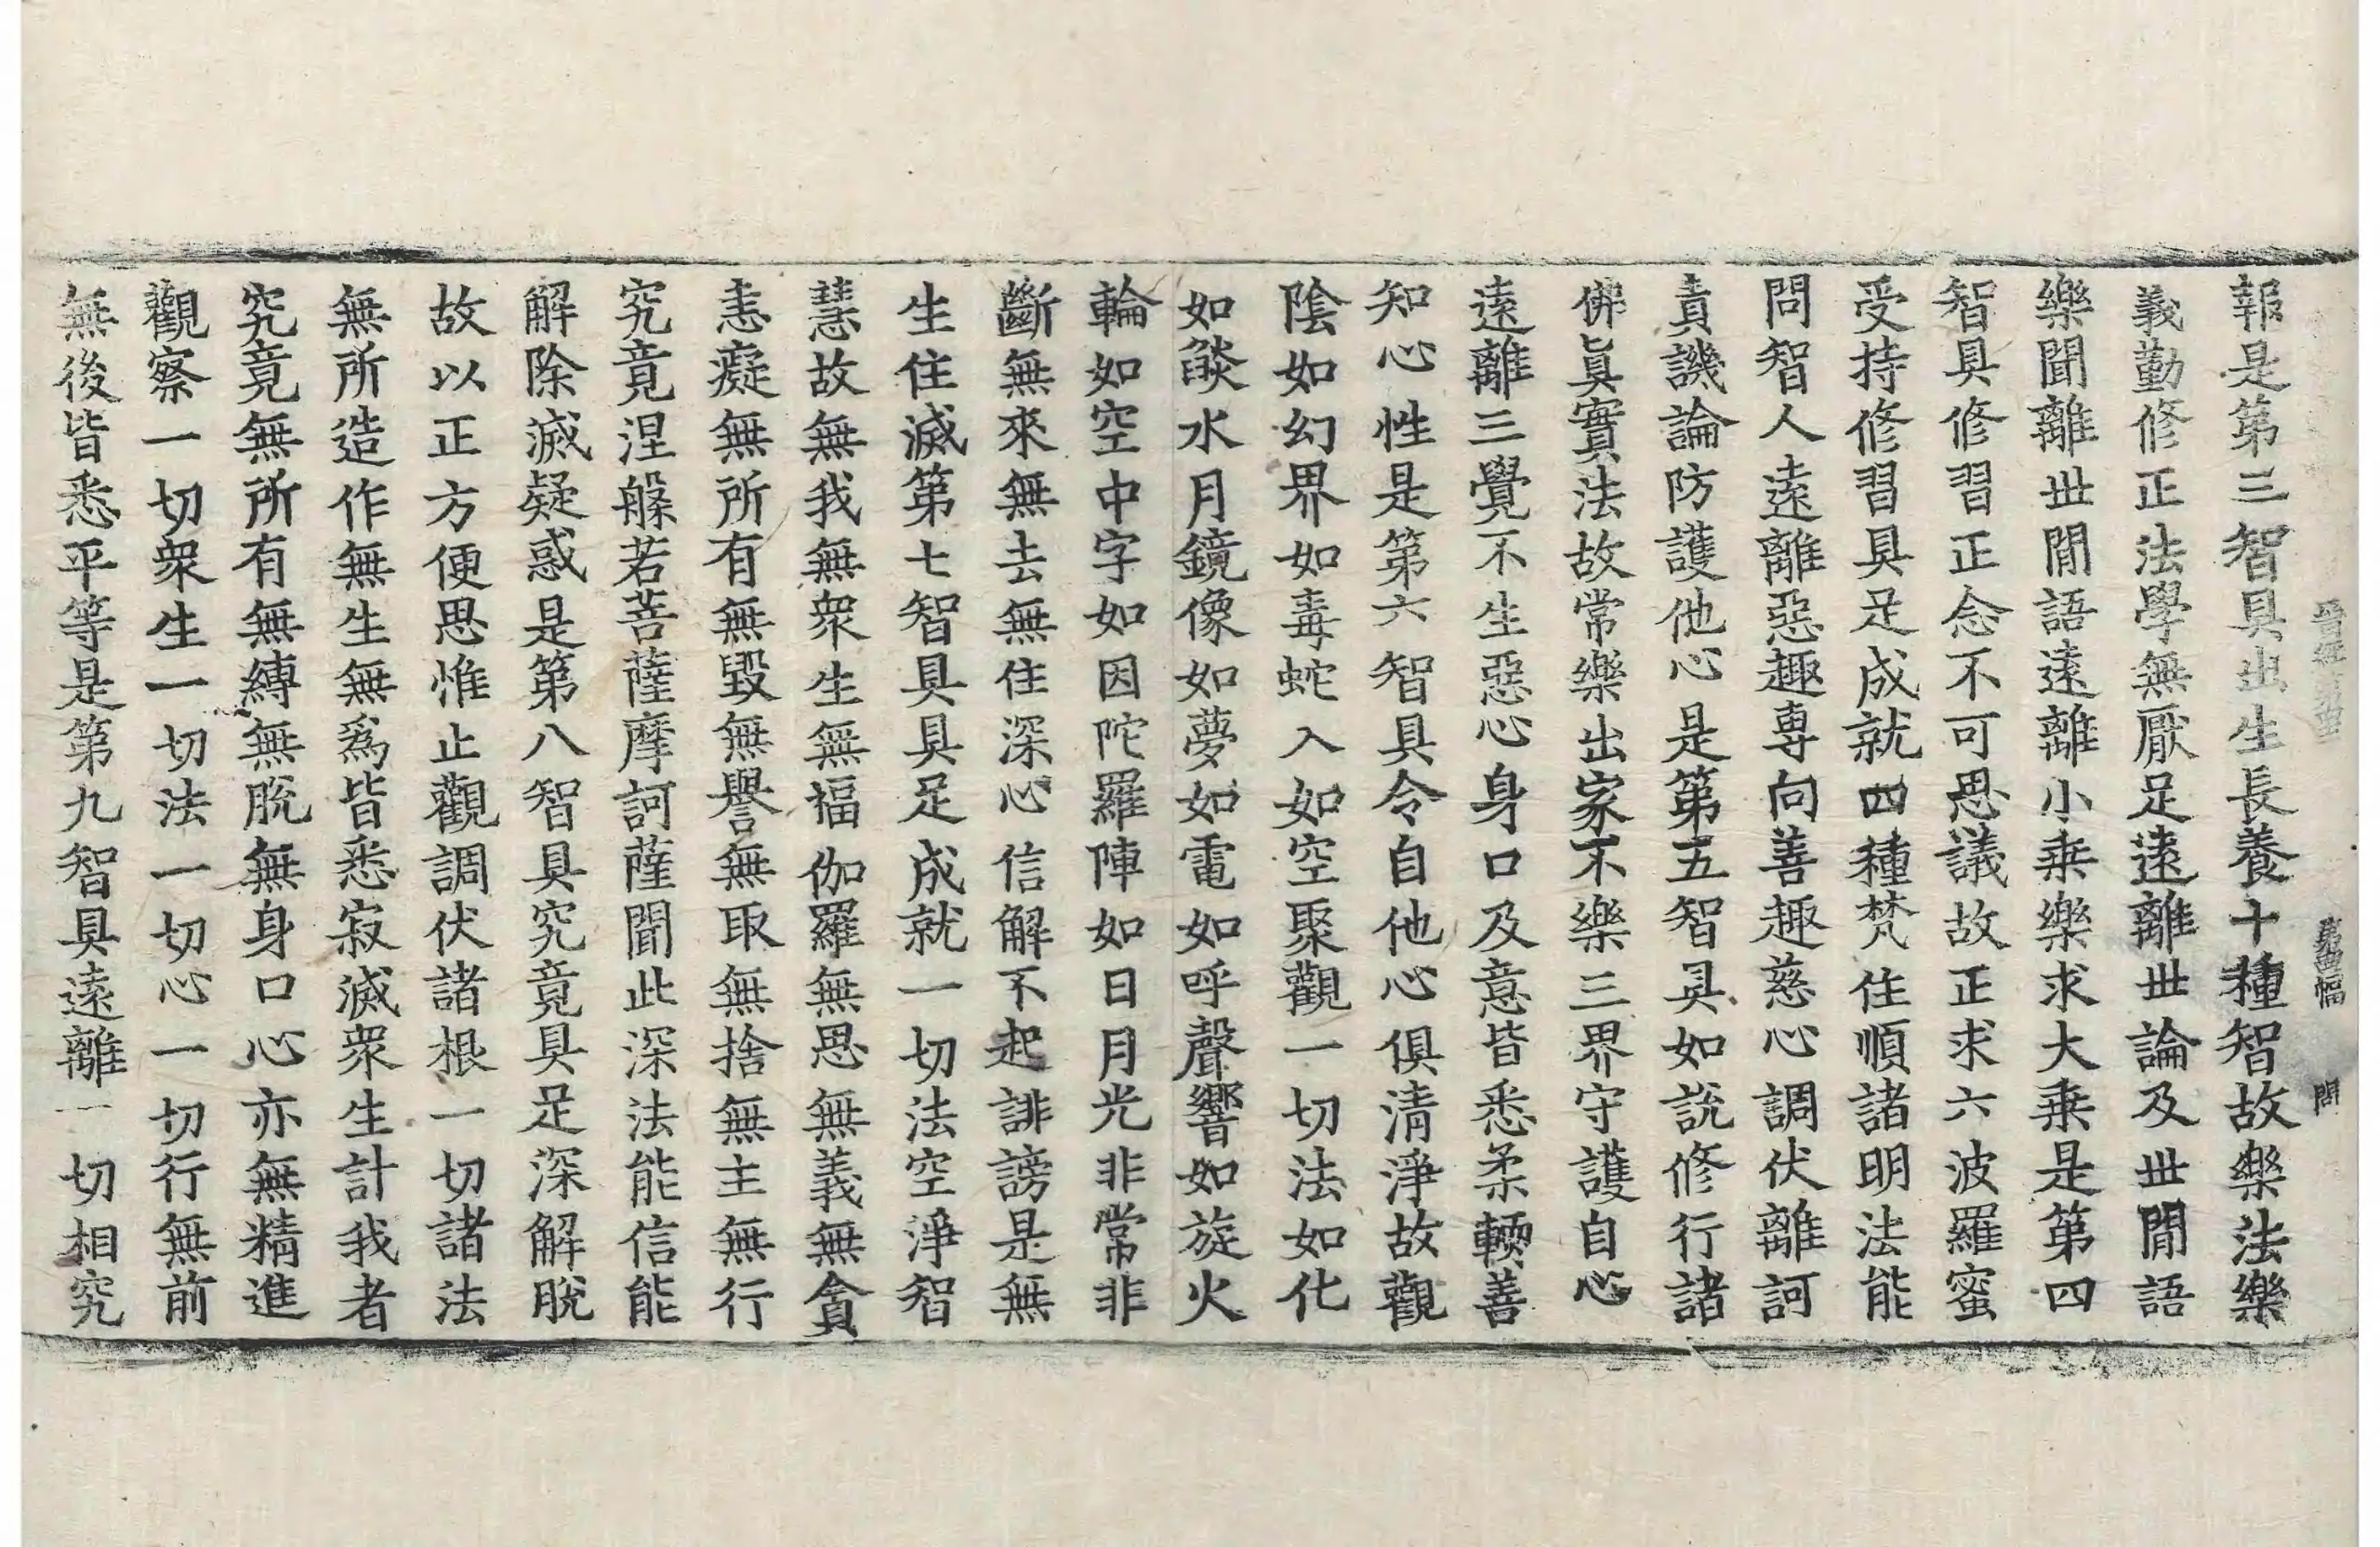 報是第三智具出生長養十種智故樂法樂
義勤修正法學無厭足遠離世論及世閒語
樂聞離世閒語遠離小乗樂求大乗是第四
智具修習正念不可思議故正求六波羅蜜
受持修習具足成就四種梵住順諸明法能
問智人遠離惡趣専向善趣慈心調伏離訶
責譏論防護他心是第五智具如說修行諸
佛眞實法故常樂出家不樂三界守護自心
遠離三覺不生惡心身口及意皆悉柔輭善
知心性是第六智具令自他心俱清淨故觀
陰如幻界如毒蛇入如空聚觀一切法如化
如燄水月鏡像如夢如電如呼聲響如旋火
輪如空中字如因陀羅陣如日月光非常非
斷無來無去無住深心信解不起誹謗是無
生住滅第七智具具足成就一切法空淨智
慧故無我無衆生無福伽羅無思無義無貪
恚癡無所有無毀無譽無取無捨無主無行
究竟涅槃若菩薩摩訶薩聞此深法能信能
解除滅疑惑是第八智具究竟具足深解脫
故以正方便思惟止觀調伏諸根一切諸法
無所造作無生無爲皆悉寂滅衆生計我者
究竟無所有無縛無脫無身口心亦無精進
觀察一切衆生一切法一切心一切行無前
無後皆悉平等是第九智具遠離一切相究